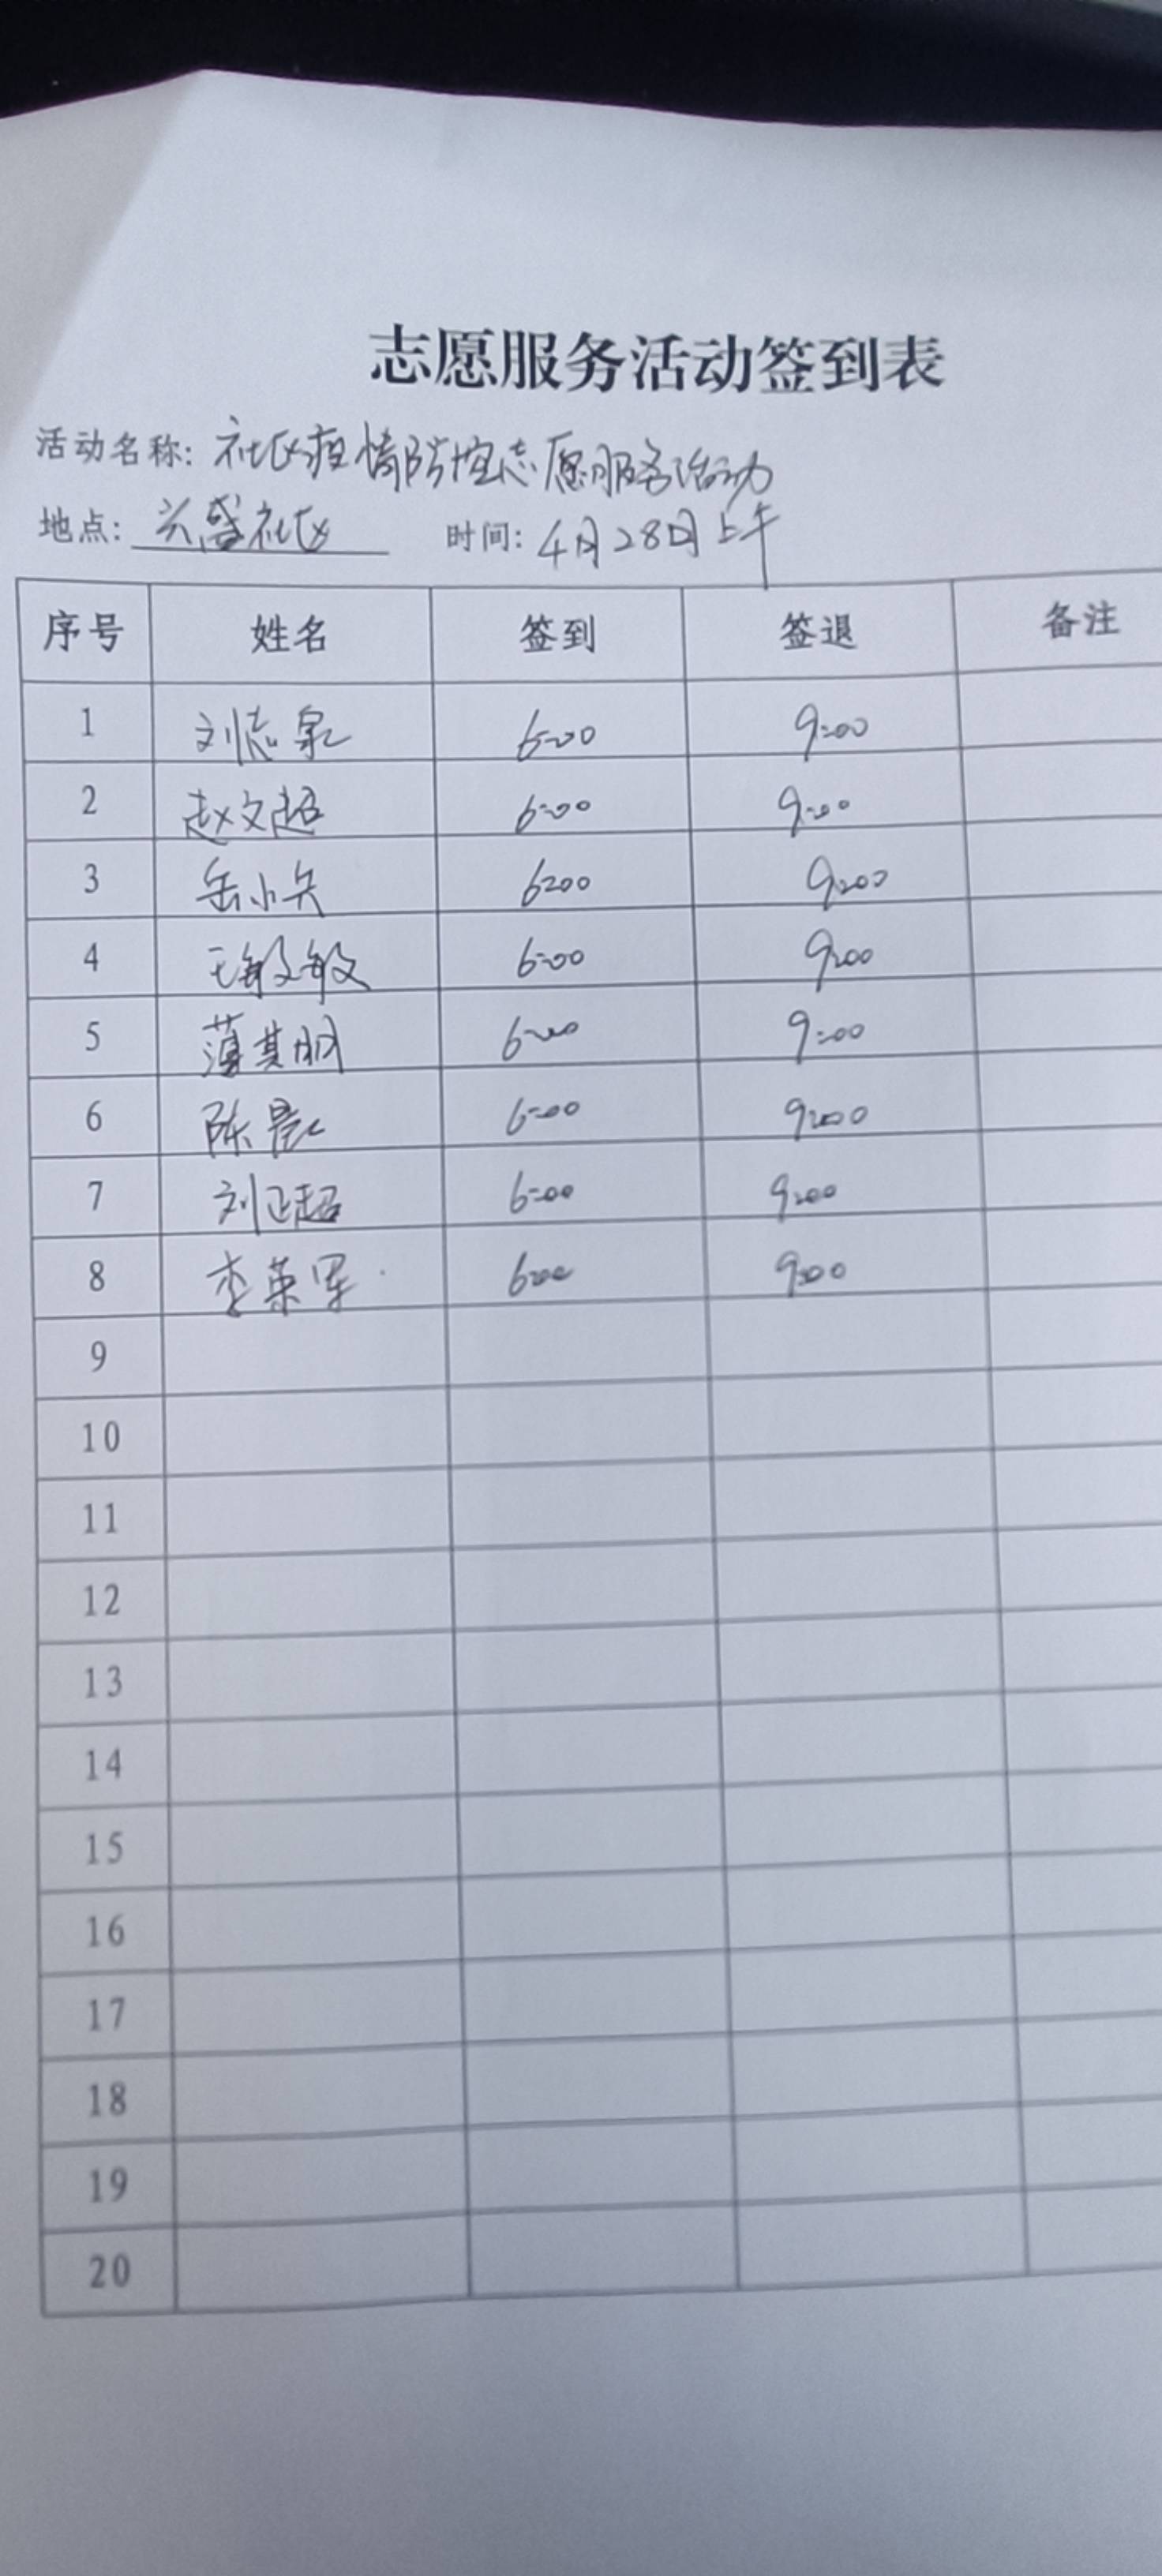 志愿服务活动签到表
活动名称: 社区疫情防控志愿服务活动
地点: 兴盛社区 时间: 4月28日上午
序号 姓名 签到 签退 备注
1 刘志泉 6:00 9:00
2 赵文超 6:00 9:00
3 岳小兵 6:00 9:00
4 王敏敏 6:00 9:00
5 薄其朋 6:00 9:00
6 陈 6:00 9:00
7 刘正超 6:00 9:00
8 李荣军 6:00 9:00
9
10
11
12
13
14
15
16
17
18
19
20